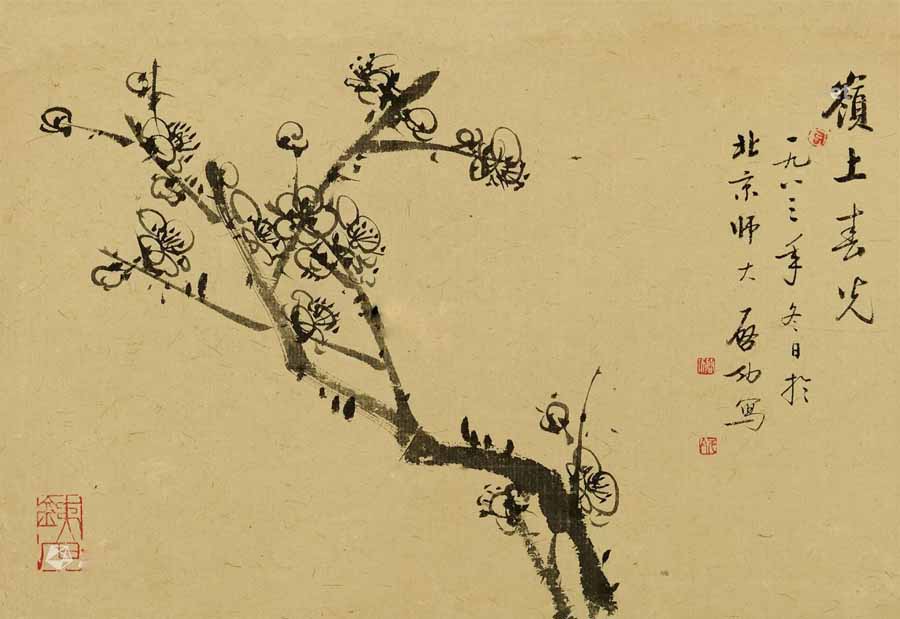 嶺上春光
一九八三年冬日於
北京師大啓功寫